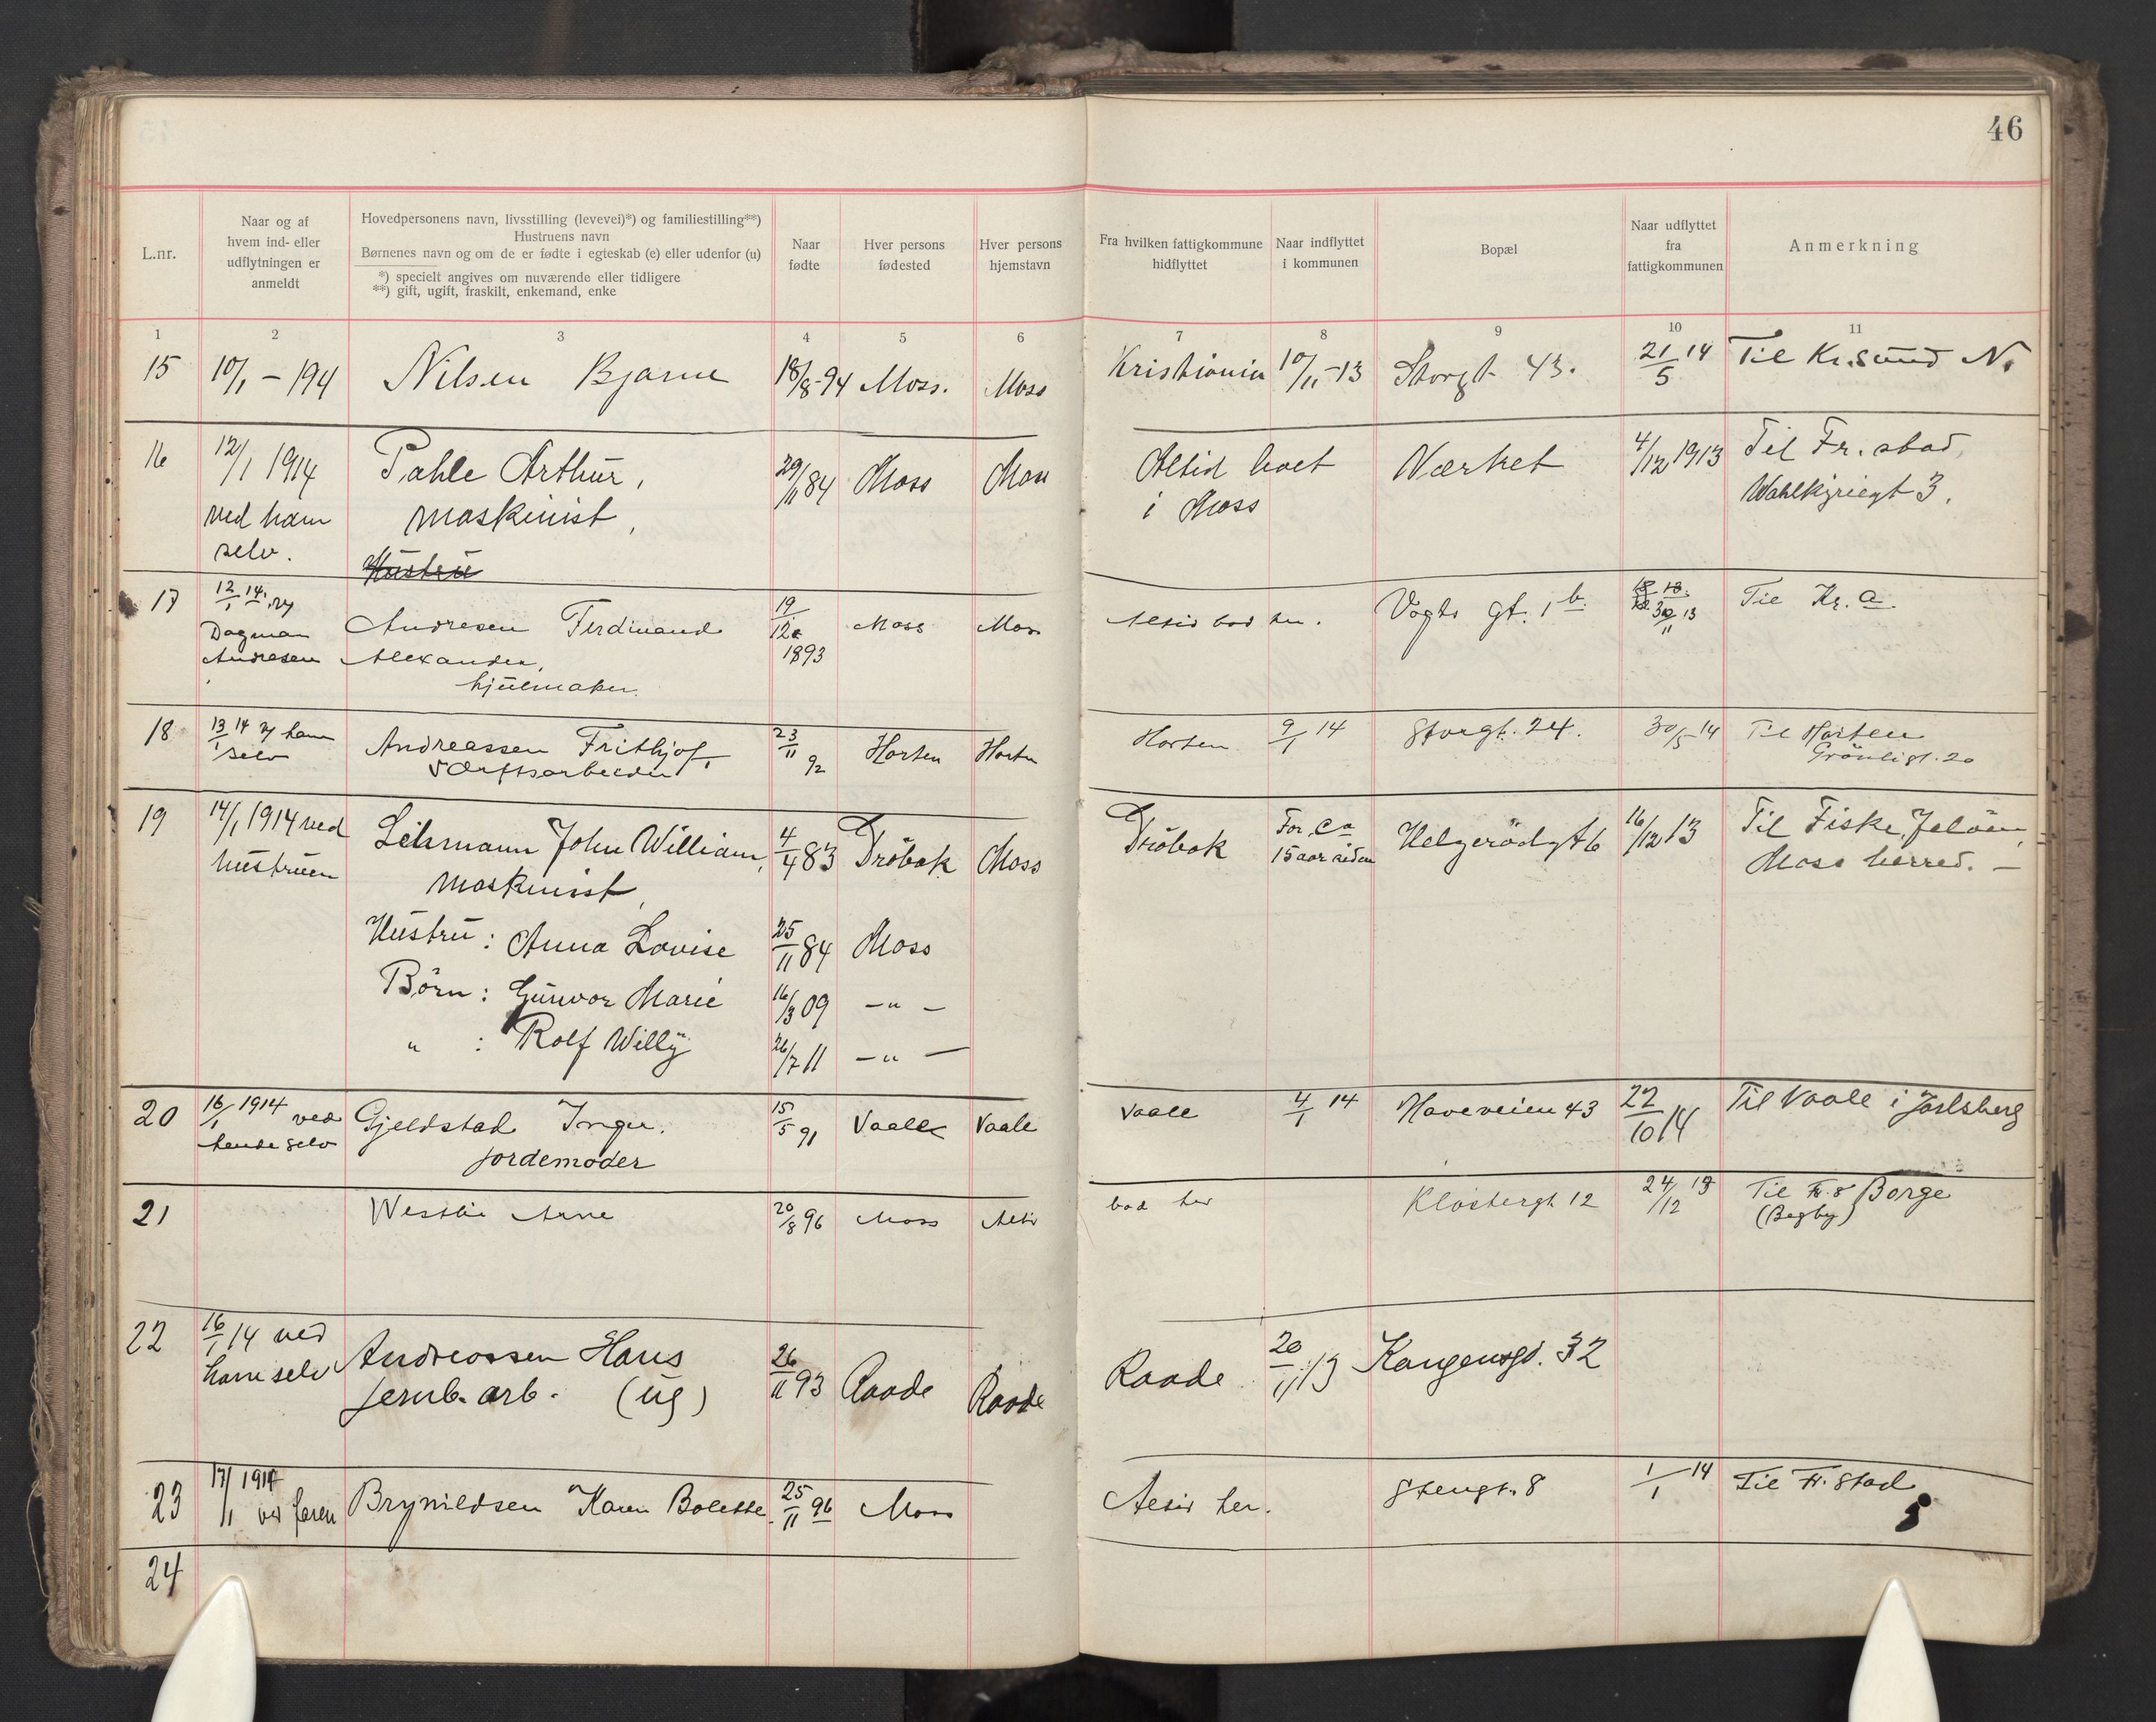 46
L.nr.
Naar og af
hvem ind- eller
udflytningen er
anmeldt
Hovedpersonens navn, livsstilling (levevei)*) og familiestilling**)
Hustruens navn
Børnenes navn og om de er fødte i egteskab (e) eller udenfor (u)
*) specielt angives om nuværende eller tidligere
**) gift, ugift, fraskilt, enkemand, enke
Naar
fødte
Hver persons
fødested
Hver persons
hjemstavn
Fra hvilken fattigkommune
hidflyttet
Naar indflyttet
i kommunen
Bopæl
Naar udflyttet
fra
fattigkommunen
Anmerkning
1 2 3 4 5 6 7 8 9 10 11
15 10/1 - 194 Nilsen Bjarne 18/8-94 Moss. Moss Kristiania 10/11-13 Storgt 43. 21/5 14 Til Kr.sund N.
16 12/1 1914 Pahle Arthur, 29/11 84 Moss Moss Altid boet Værket 4/12 1913 Til Fr. stad,
ved ham maskinist, i Moss 3.
selv. Hustru
17 12/1 14. Andresen Ferdinand 19/12 Moss Moss Altid bod her. Vogts gt. 1 b. 30/11 13 Til Kr. a
Dagmar Alexander, 1893
Andresen hjulmaker.
18 13/1 14 v/ ham Andreassen Frithjof, 23/11 92 Horten Horten Horten 9/1 14 Storgt. 24. 30/5 14 Til Horten
selv værftsarbeider Grönligt. 20
19 14/1 1914 ved John William, 4/4 83 Dröbak Moss Dröbak For ca Helgerödgt 6 16/12 13 Til Fiske, Jelöen,
hustruen maskinist, 15 aar siden Moss herred. —
Hustru : Anna Lovise 25/11 84 Moss
Börn : Gunvor Marie 16/3 09 — " —
" : Rolf Willy 26/7 11 — " —
20 16/1 1914 ved Gjeldstad Inga. 15/5 91 Vaale Vaale Vaale 4/1 14 Haveveien 43 22/10 14 Til Vaale i Jarlsberg
hende selv jordemoder
21 Westlie Arne 20/8 96 Moss Altid bod her Klostergt 12 24/12 13 Til Fr.s Borge
(Begby)
22 16/1 14 ved Andreassen Hans 26/11 93 Raade Raade Raade 20/11 13 Kongensgt. 32
ham selv jernb. arb. (ug)
23 17/1 1914 Brynildsen Karen Bolette 25/11 96 Moss Altid her. Stengt. 8 1/1 14 Til Fr. stad
ved faren
24